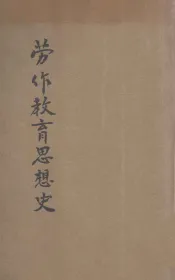 劳作教育思想史